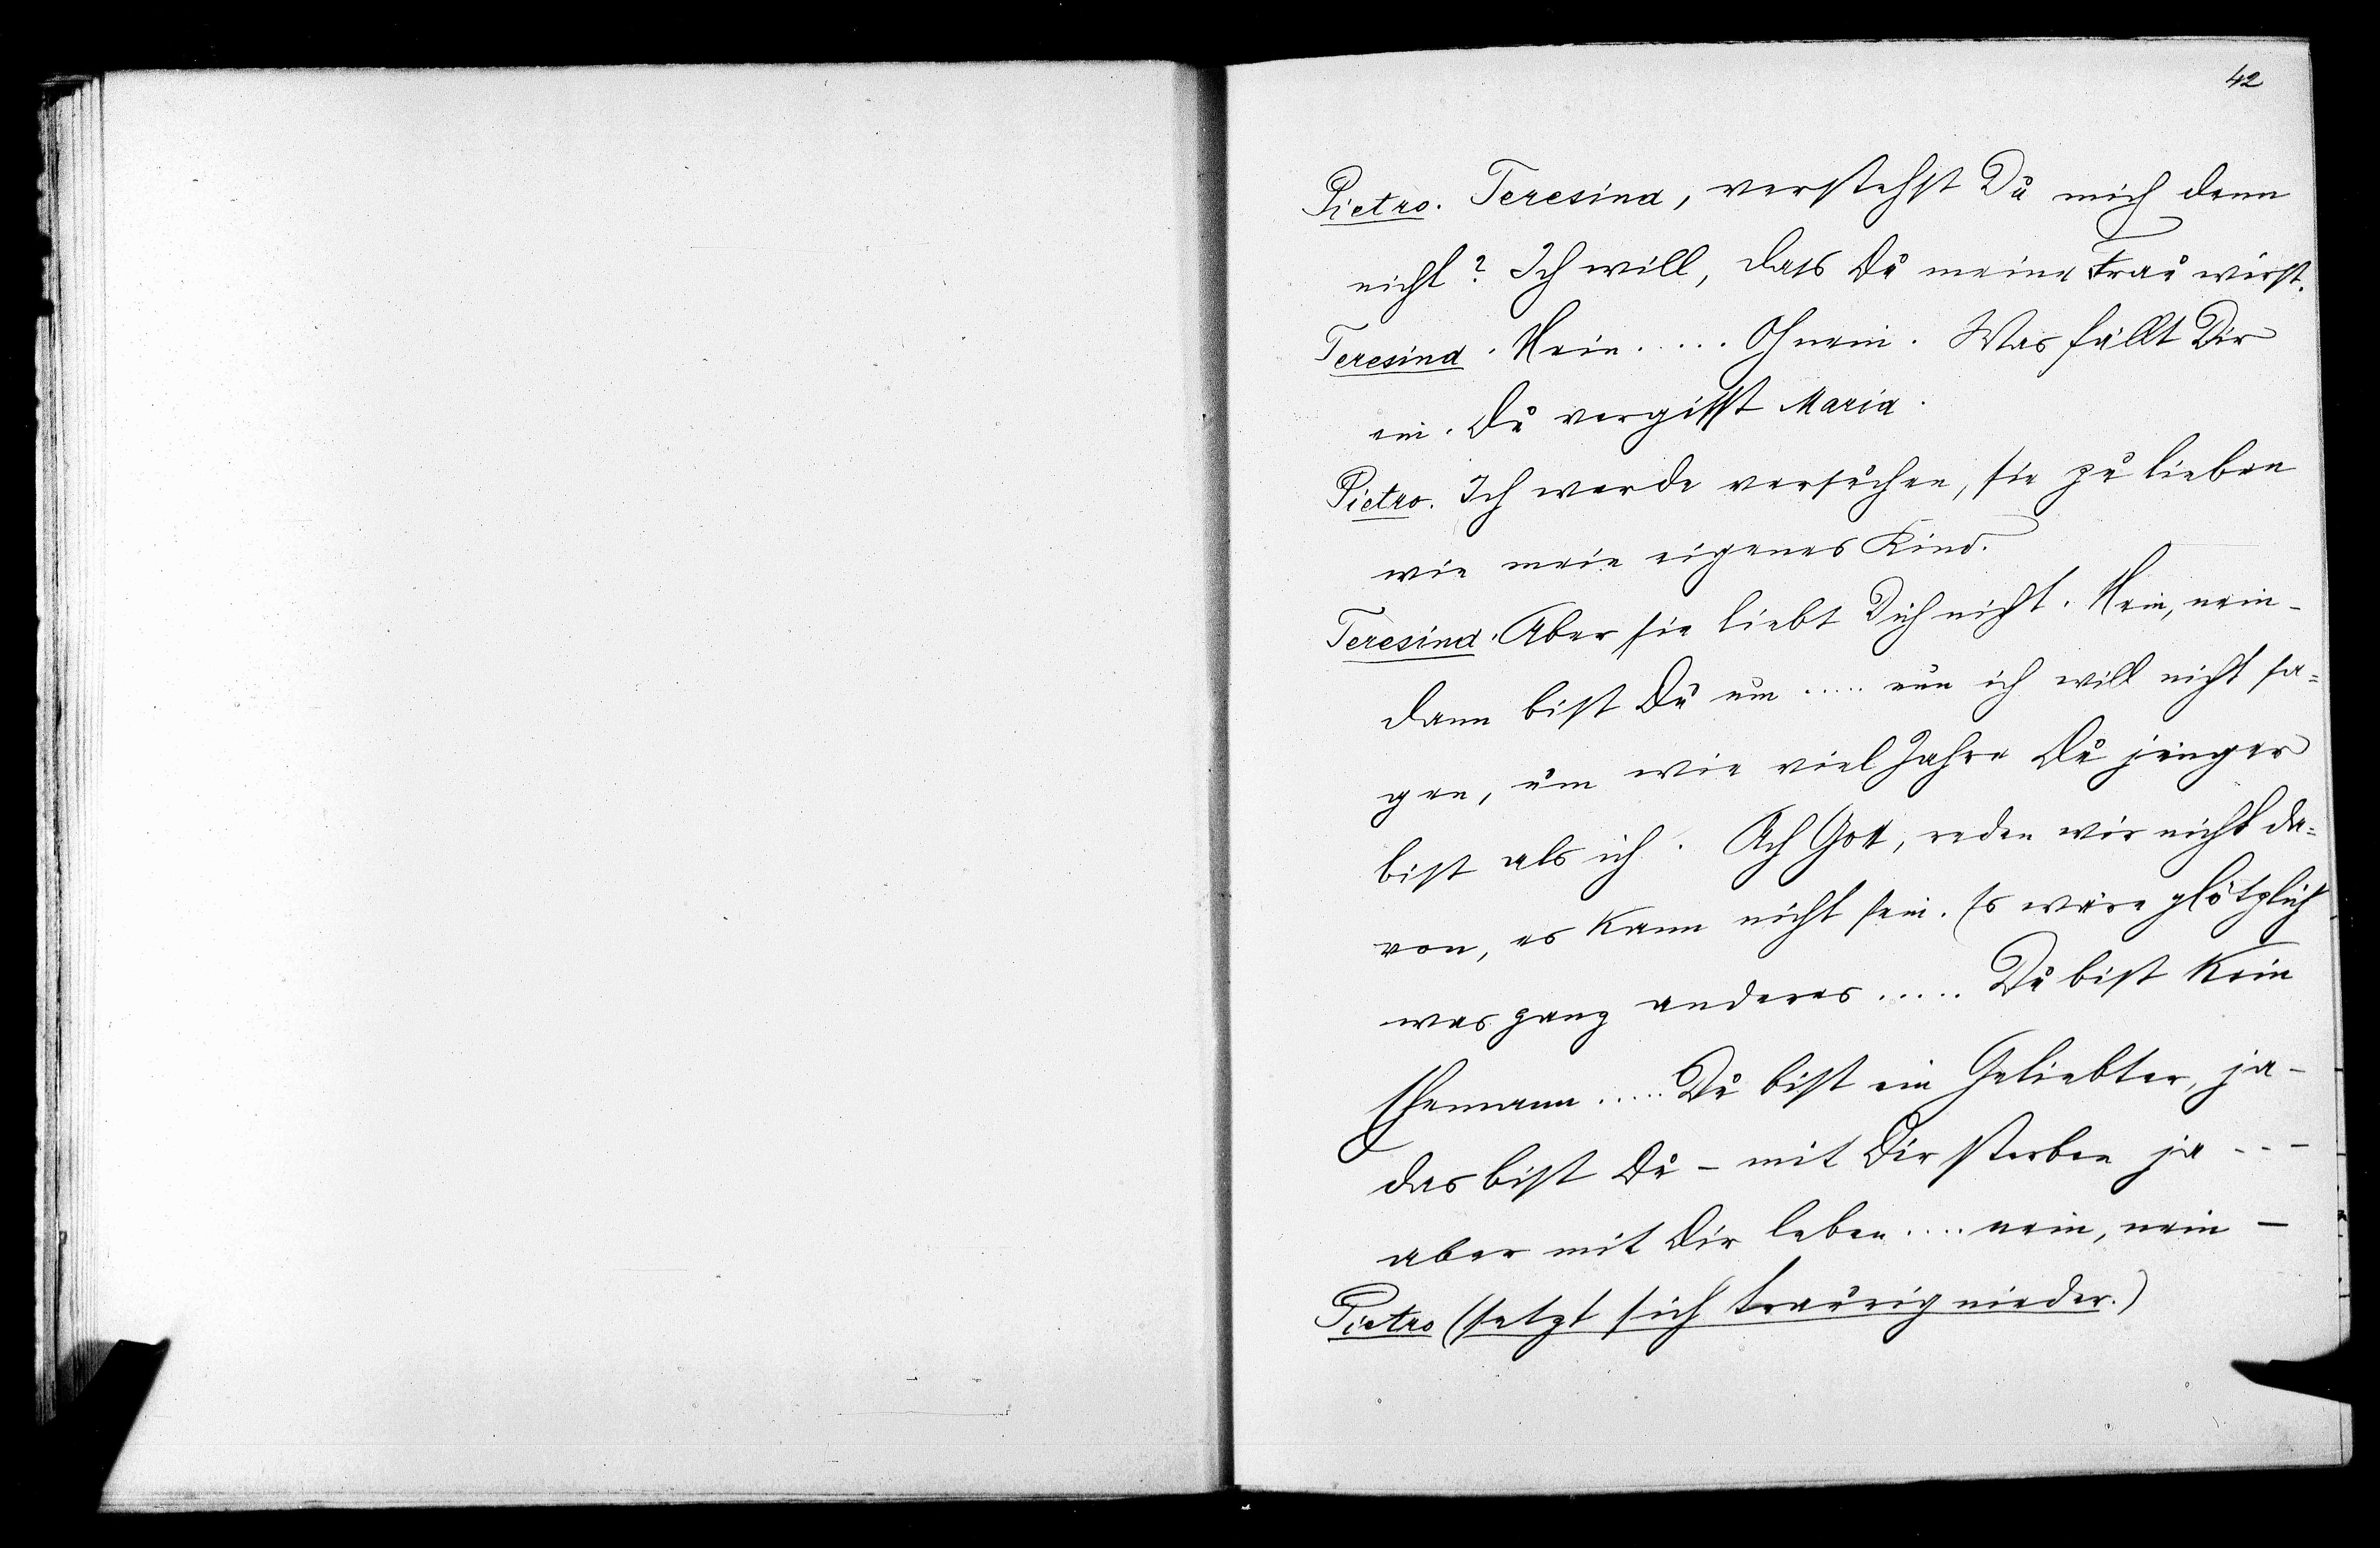 42
Pietro. Teresina, verstehst Du mich denn
nicht? Ich will, dass Du meine Frau wirst.
Teresina. Nein..... Oh nein. Was fällt Dir
ein. Du vergisst Maria.
Pietro. Ich werde versuchen, sie zu lieben
wie mein eigenes Kind.
Teresina. Aber sie liebt Dich nicht. Nein, nein –
dann bist Du um ..... nun ich will nicht sa=
gen, um wie viel Jahre Du jünger
bist als ich. Ach Gott, reden wir nicht da=
von, es kann nicht sein. Es wäre plötzlich
was ganz anderes ..... Du bist kein
Ehemann ..... Du bist ein Geliebter, ja –
das bist Du – mit Dir sterben ja - - -
aber mit Dir leben .... nein, nein –
Pietro (setzt sich traurig nieder.)